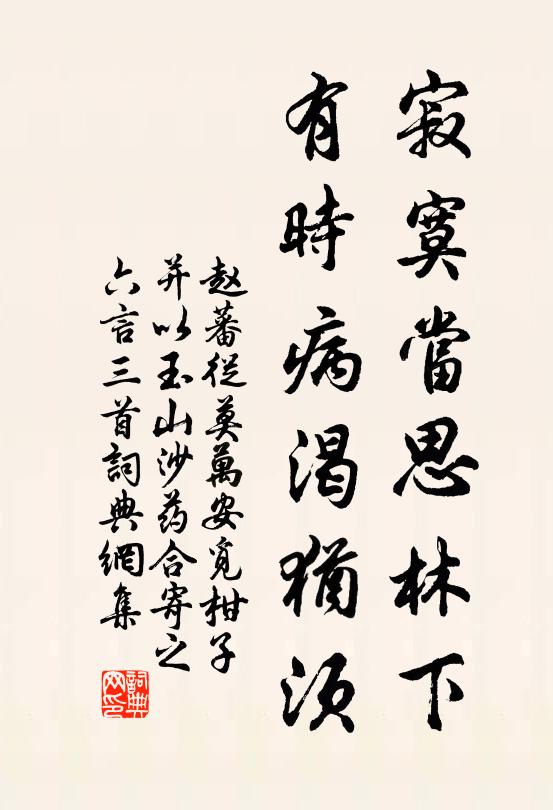 寂寞當思林下
有時病渴猶須
赵蕃從莫萬安覓柑子
并以玉山沙药合寄之
六言三首詞典網集
詞典
网印